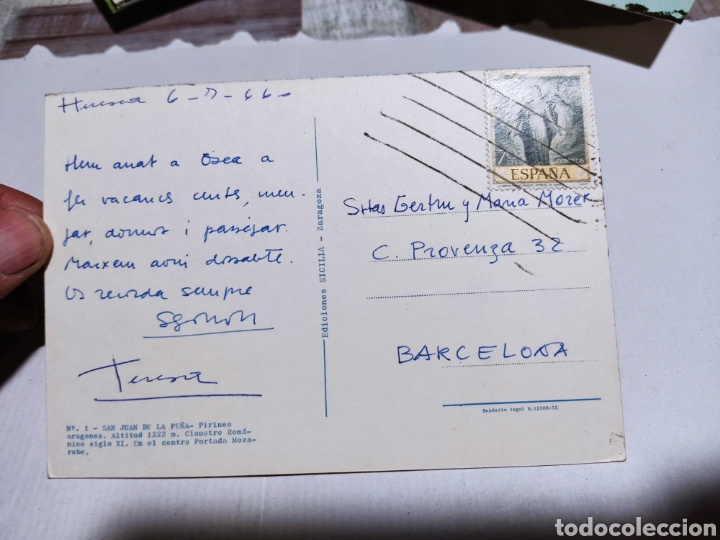 Huesca 6-7-66
Hem anat a Osca a
fer vacances curtes, men-
jar, dormir i passejar.
Marxem avui dissabte.
Us recorda sempre
Teresa
Nº. 1 - SAN JUAN DE LA PEÑA- Pirineo
aragones. Altitud 1222 m. Claustro Romá-
nico siglo XI. En el centro Portada Moza-
rabe.
Ediciones SICILIA - Zaragoza
CORREOS
ESPAÑA
Srtas Gertru y Maria Morer
C. Provenza 32
BARCELONA
Depósito legal B.12568-IX
todocoleccion